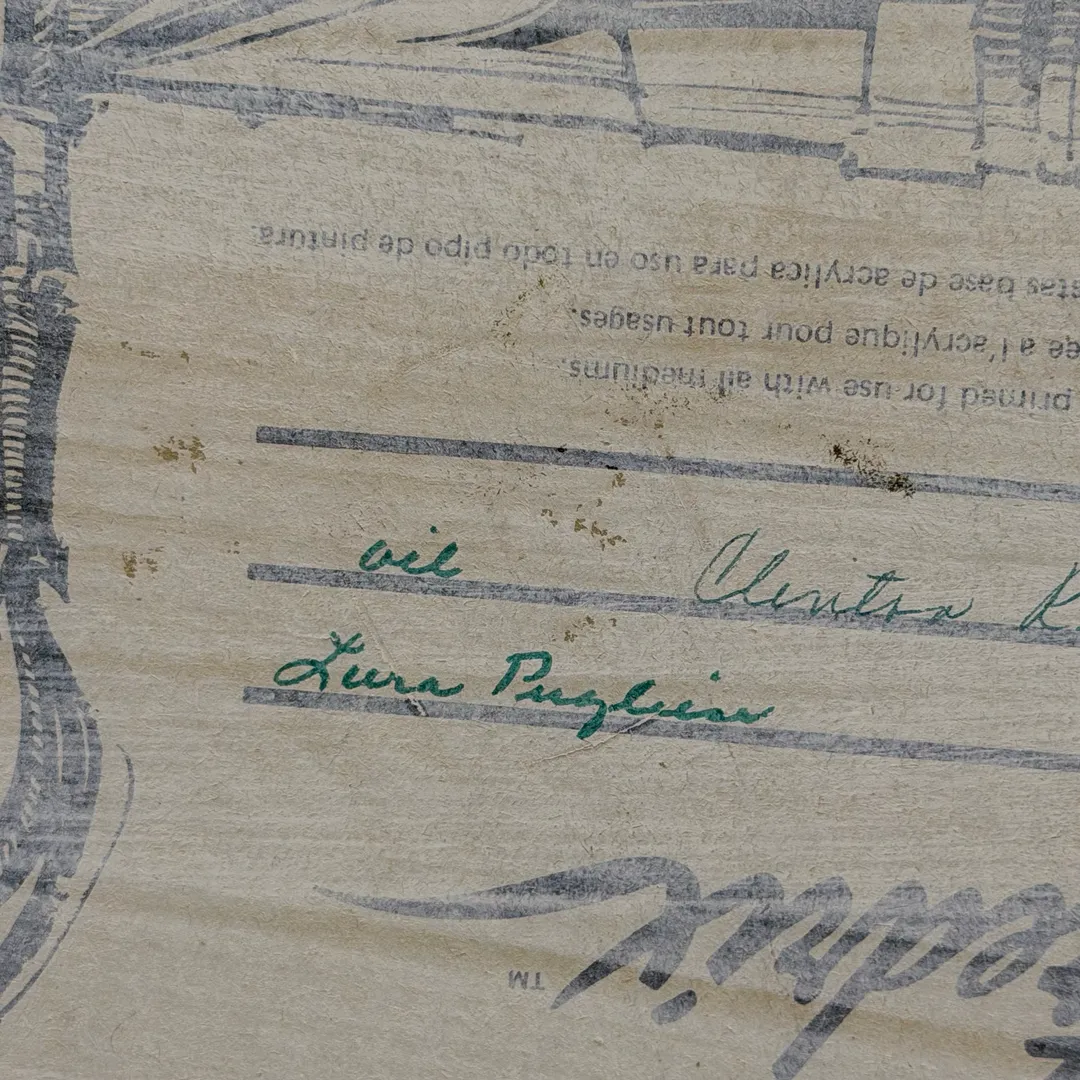 stas base de acrylica para uso en todo pipo de pintura.
ée a l'acrylique pour tout usages.
primed for use with all mediums.
oil Clinton K
Lura Pugliese
edrix
TM